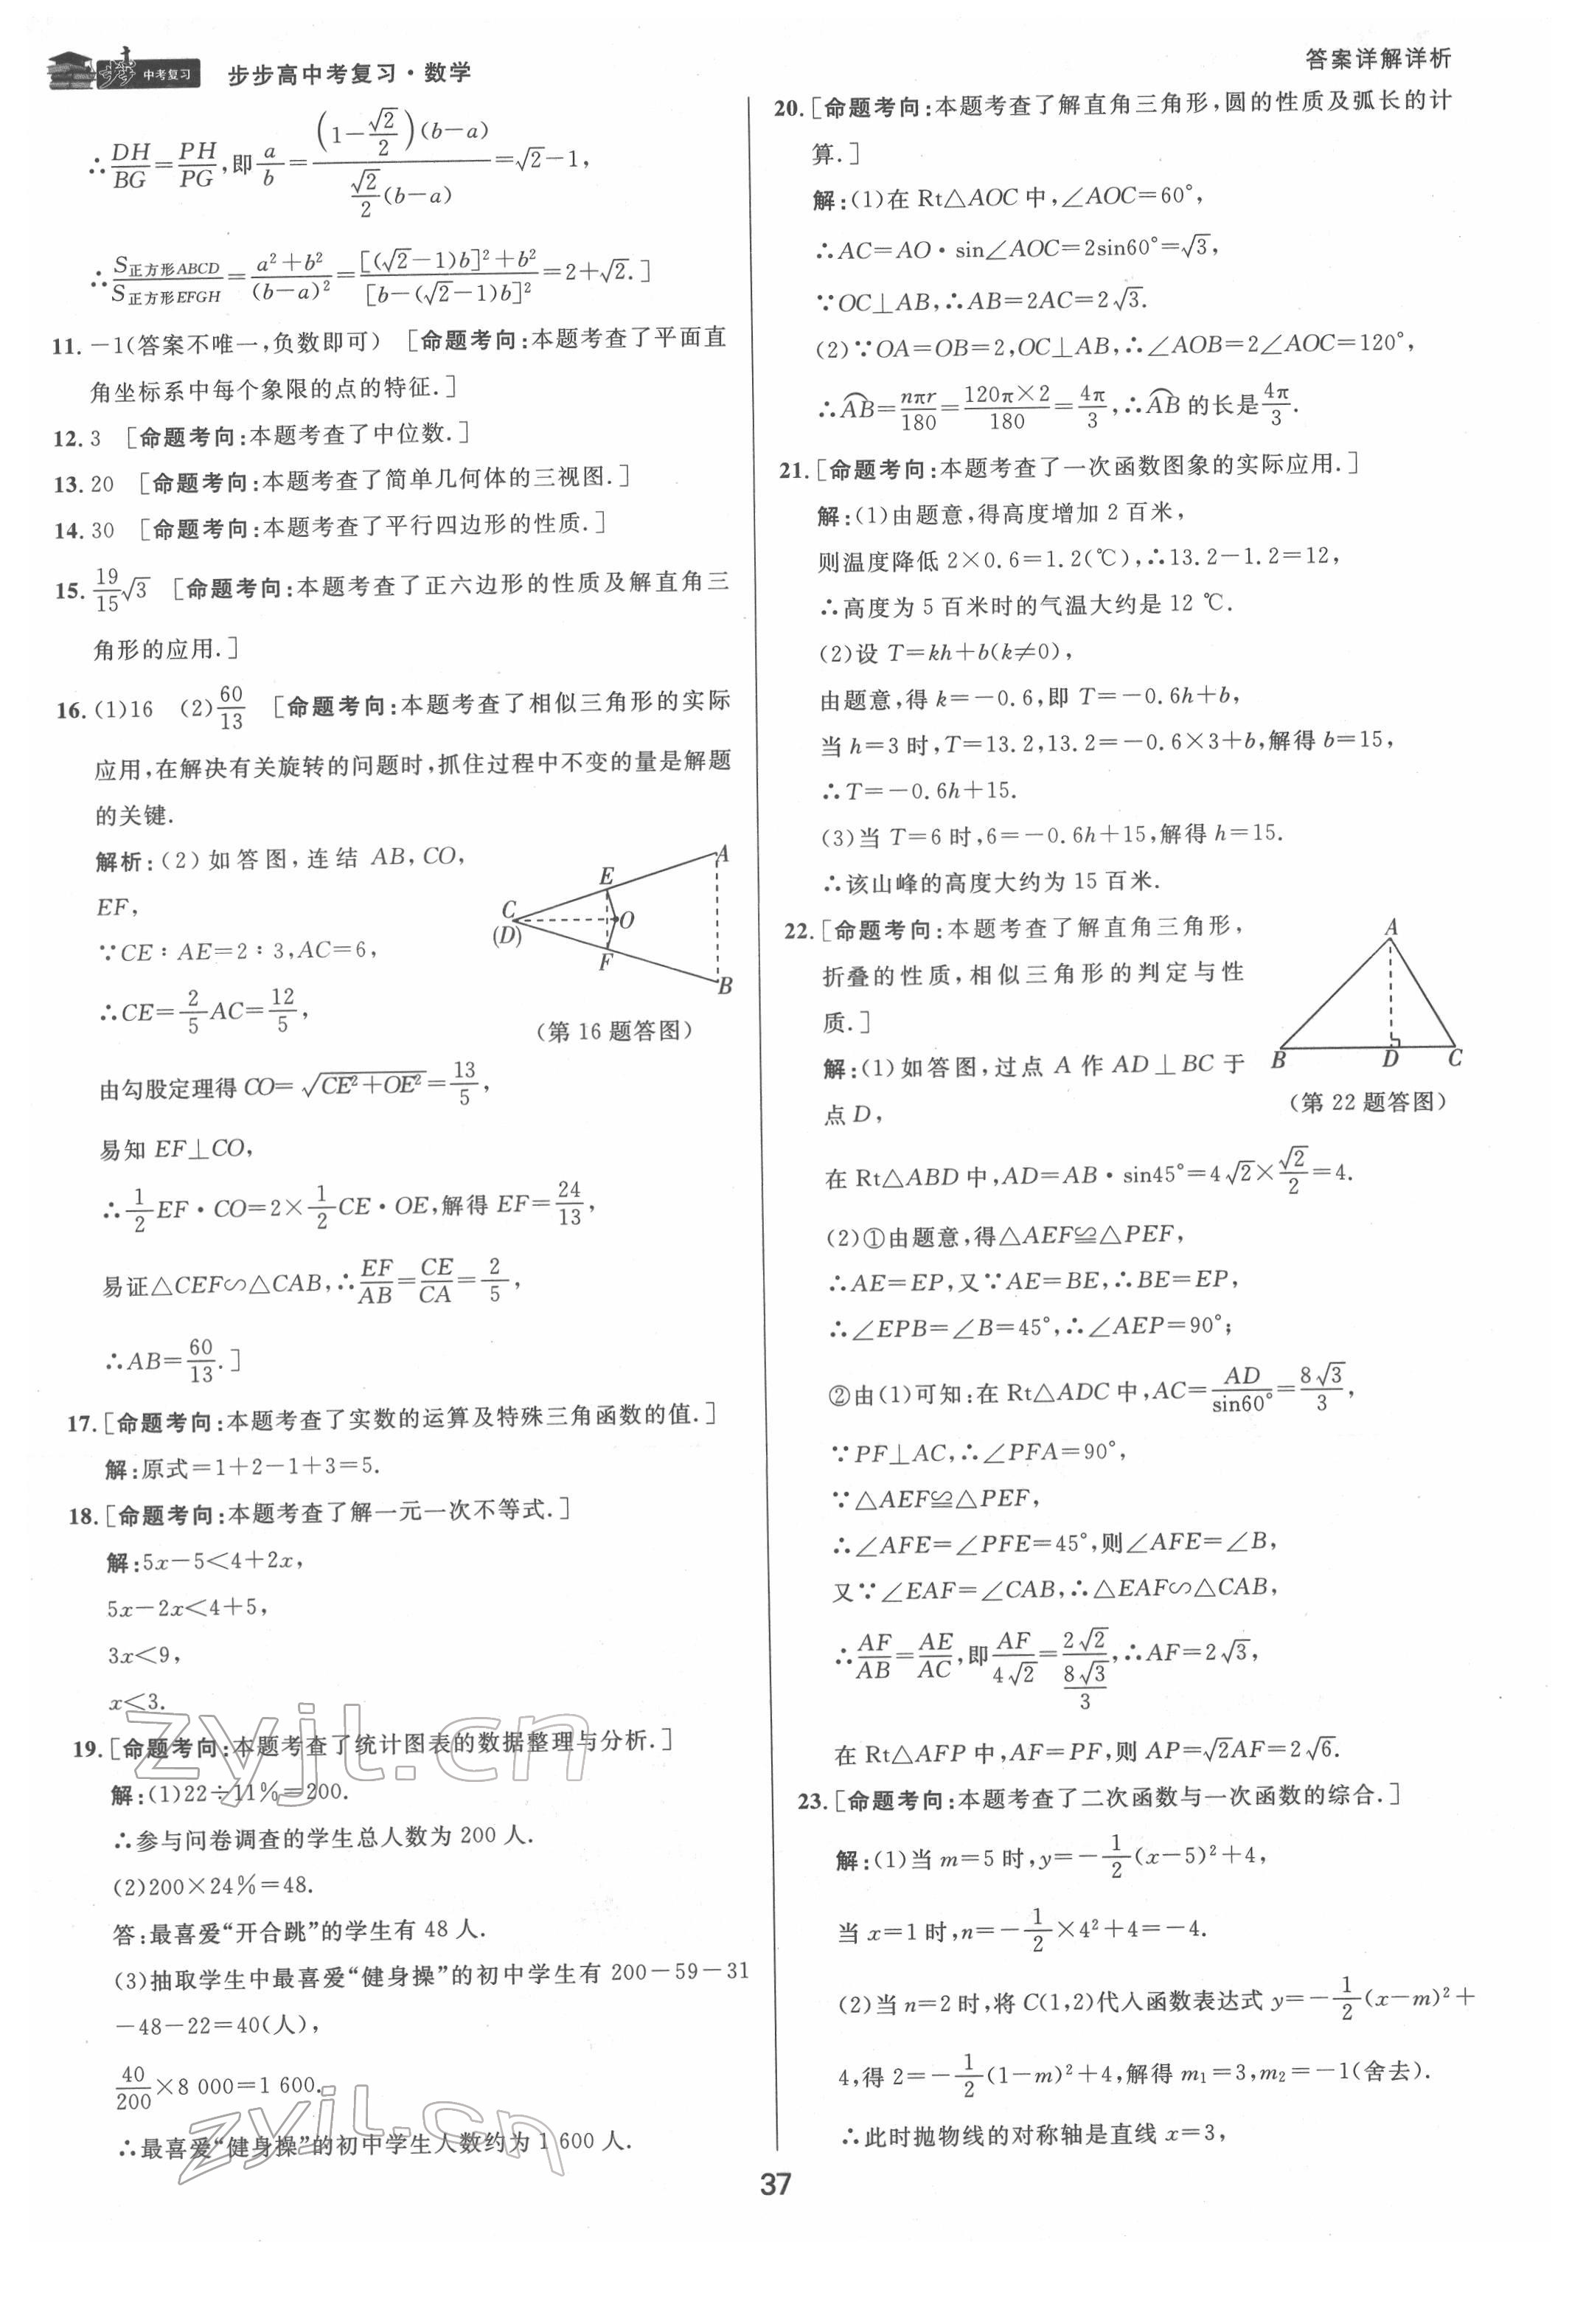 中考复习 步步高中考复习·数学
答案详解详析
∴DH/BG=PH/PG,即a/b=(1-√2/2)(b-a)/(√2/2(b-a))=√2-1,
∴S正方形ABCD/S正方形EFGH=(a²+b²)/(b-a)²=([(√2-1)b]²+b²)/[b-(√2-1)b]²=2+√2.]
11.-1(答案不唯一,负数即可) [命题考向:本题考查了平面直
角坐标系中每个象限的点的特征.]
12.3 [命题考向:本题考查了中位数.]
13.20 [命题考向:本题考查了简单几何体的三视图.]
14.30 [命题考向:本题考查了平行四边形的性质.]
15.19/15√3 [命题考向:本题考查了正六边形的性质及解直角三
角形的应用.]
16.(1)16 (2)60/13 [命题考向:本题考查了相似三角形的实际
应用,在解决有关旋转的问题时,抓住过程中不变的量是解题
的关键.
解析:(2)如答图,连结 AB,CO,
EF,
∵CE∶AE=2∶3,AC=6,
∴CE=2/5AC=12/5,
A
E
C
(D)
O
F
B
(第 16 题答图)
由勾股定理得 CO=√(CE²+OE²)=13/5,
易知 EF⊥CO,
∴1/2EF·CO=2×1/2CE·OE,解得 EF=24/13,
易证△CEF∽△CAB,∴EF/AB=CE/CA=2/5,
∴AB=60/13.]
17.[命题考向:本题考查了实数的运算及特殊三角函数的值.]
解:原式=1+2-1+3=5.
18.[命题考向:本题考查了解一元一次不等式.]
解:5x-5<4+2x,
5x-2x<4+5,
3x<9,
x<3.
19.[命题考向:本题考查了统计图表的数据整理与分析.]
解:(1)22÷11%=200.
∴参与问卷调查的学生总人数为 200 人.
(2)200×24%=48.
答:最喜爱“开合跳”的学生有 48 人.
(3)抽取学生中最喜爱“健身操”的初中学生有 200-59-31
-48-22=40(人),
40/200×8 000=1 600.
∴最喜爱“健身操”的初中学生人数约为 1 600 人.
20.[命题考向:本题考查了解直角三角形,圆的性质及弧长的计
算.]
解:(1)在 Rt△AOC 中,∠AOC=60°,
∴AC=AO·sin∠AOC=2sin60°=√3,
∵OC⊥AB,∴AB=2AC=2√3.
(2)∵OA=OB=2,OC⊥AB,∴∠AOB=2∠AOC=120°,
∴⌒AB=nπr/180=120π×2/180=4π/3,∴⌒AB 的长是4π/3.
21.[命题考向:本题考查了一次函数图象的实际应用.]
解:(1)由题意,得高度增加 2 百米,
则温度降低 2×0.6=1.2(℃),∴13.2-1.2=12,
∴高度为 5 百米时的气温大约是 12 ℃.
(2)设 T=kh+b(k≠0),
由题意,得 k=-0.6,即 T=-0.6h+b,
当 h=3 时,T=13.2,13.2=-0.6×3+b,解得 b=15,
∴T=-0.6h+15.
(3)当 T=6 时,6=-0.6h+15,解得 h=15.
∴该山峰的高度大约为 15 百米.
22.[命题考向:本题考查了解直角三角形,
折叠的性质,相似三角形的判定与性
质.]
解:(1)如答图,过点 A 作 AD⊥BC 于
点 D,
A
B
D
C
(第 22 题答图)
在 Rt△ABD 中,AD=AB·sin45°=4√2×√2/2=4.
(2)①由题意,得△AEF≌△PEF,
∴AE=EP,又∵AE=BE,∴BE=EP,
∴∠EPB=∠B=45°,∴∠AEP=90°;
②由(1)可知:在 Rt△ADC 中,AC=AD/sin60°=8√3/3,
∵PF⊥AC,∴∠PFA=90°,
∵△AEF≌△PEF,
∴∠AFE=∠PFE=45°,则∠AFE=∠B,
又∵∠EAF=∠CAB,∴△EAF∽△CAB,
∴AF/AB=AE/AC,即AF/4√2=2√2/(8√3/3),∴AF=2√3,
在 Rt△AFP 中,AF=PF,则 AP=√2AF=2√6.
23.[命题考向:本题考查了二次函数与一次函数的综合.]
解:(1)当 m=5 时,y=-1/2(x-5)²+4,
当 x=1 时,n=-1/2×4²+4=-4.
(2)当 n=2 时,将 C(1,2)代入函数表达式 y=-1/2(x-m)²+
4,得 2=-1/2(1-m)²+4,解得 m₁=3,m₂=-1(舍去).
∴此时抛物线的对称轴是直线 x=3,
37
zyjl.cn
zyjl.cn